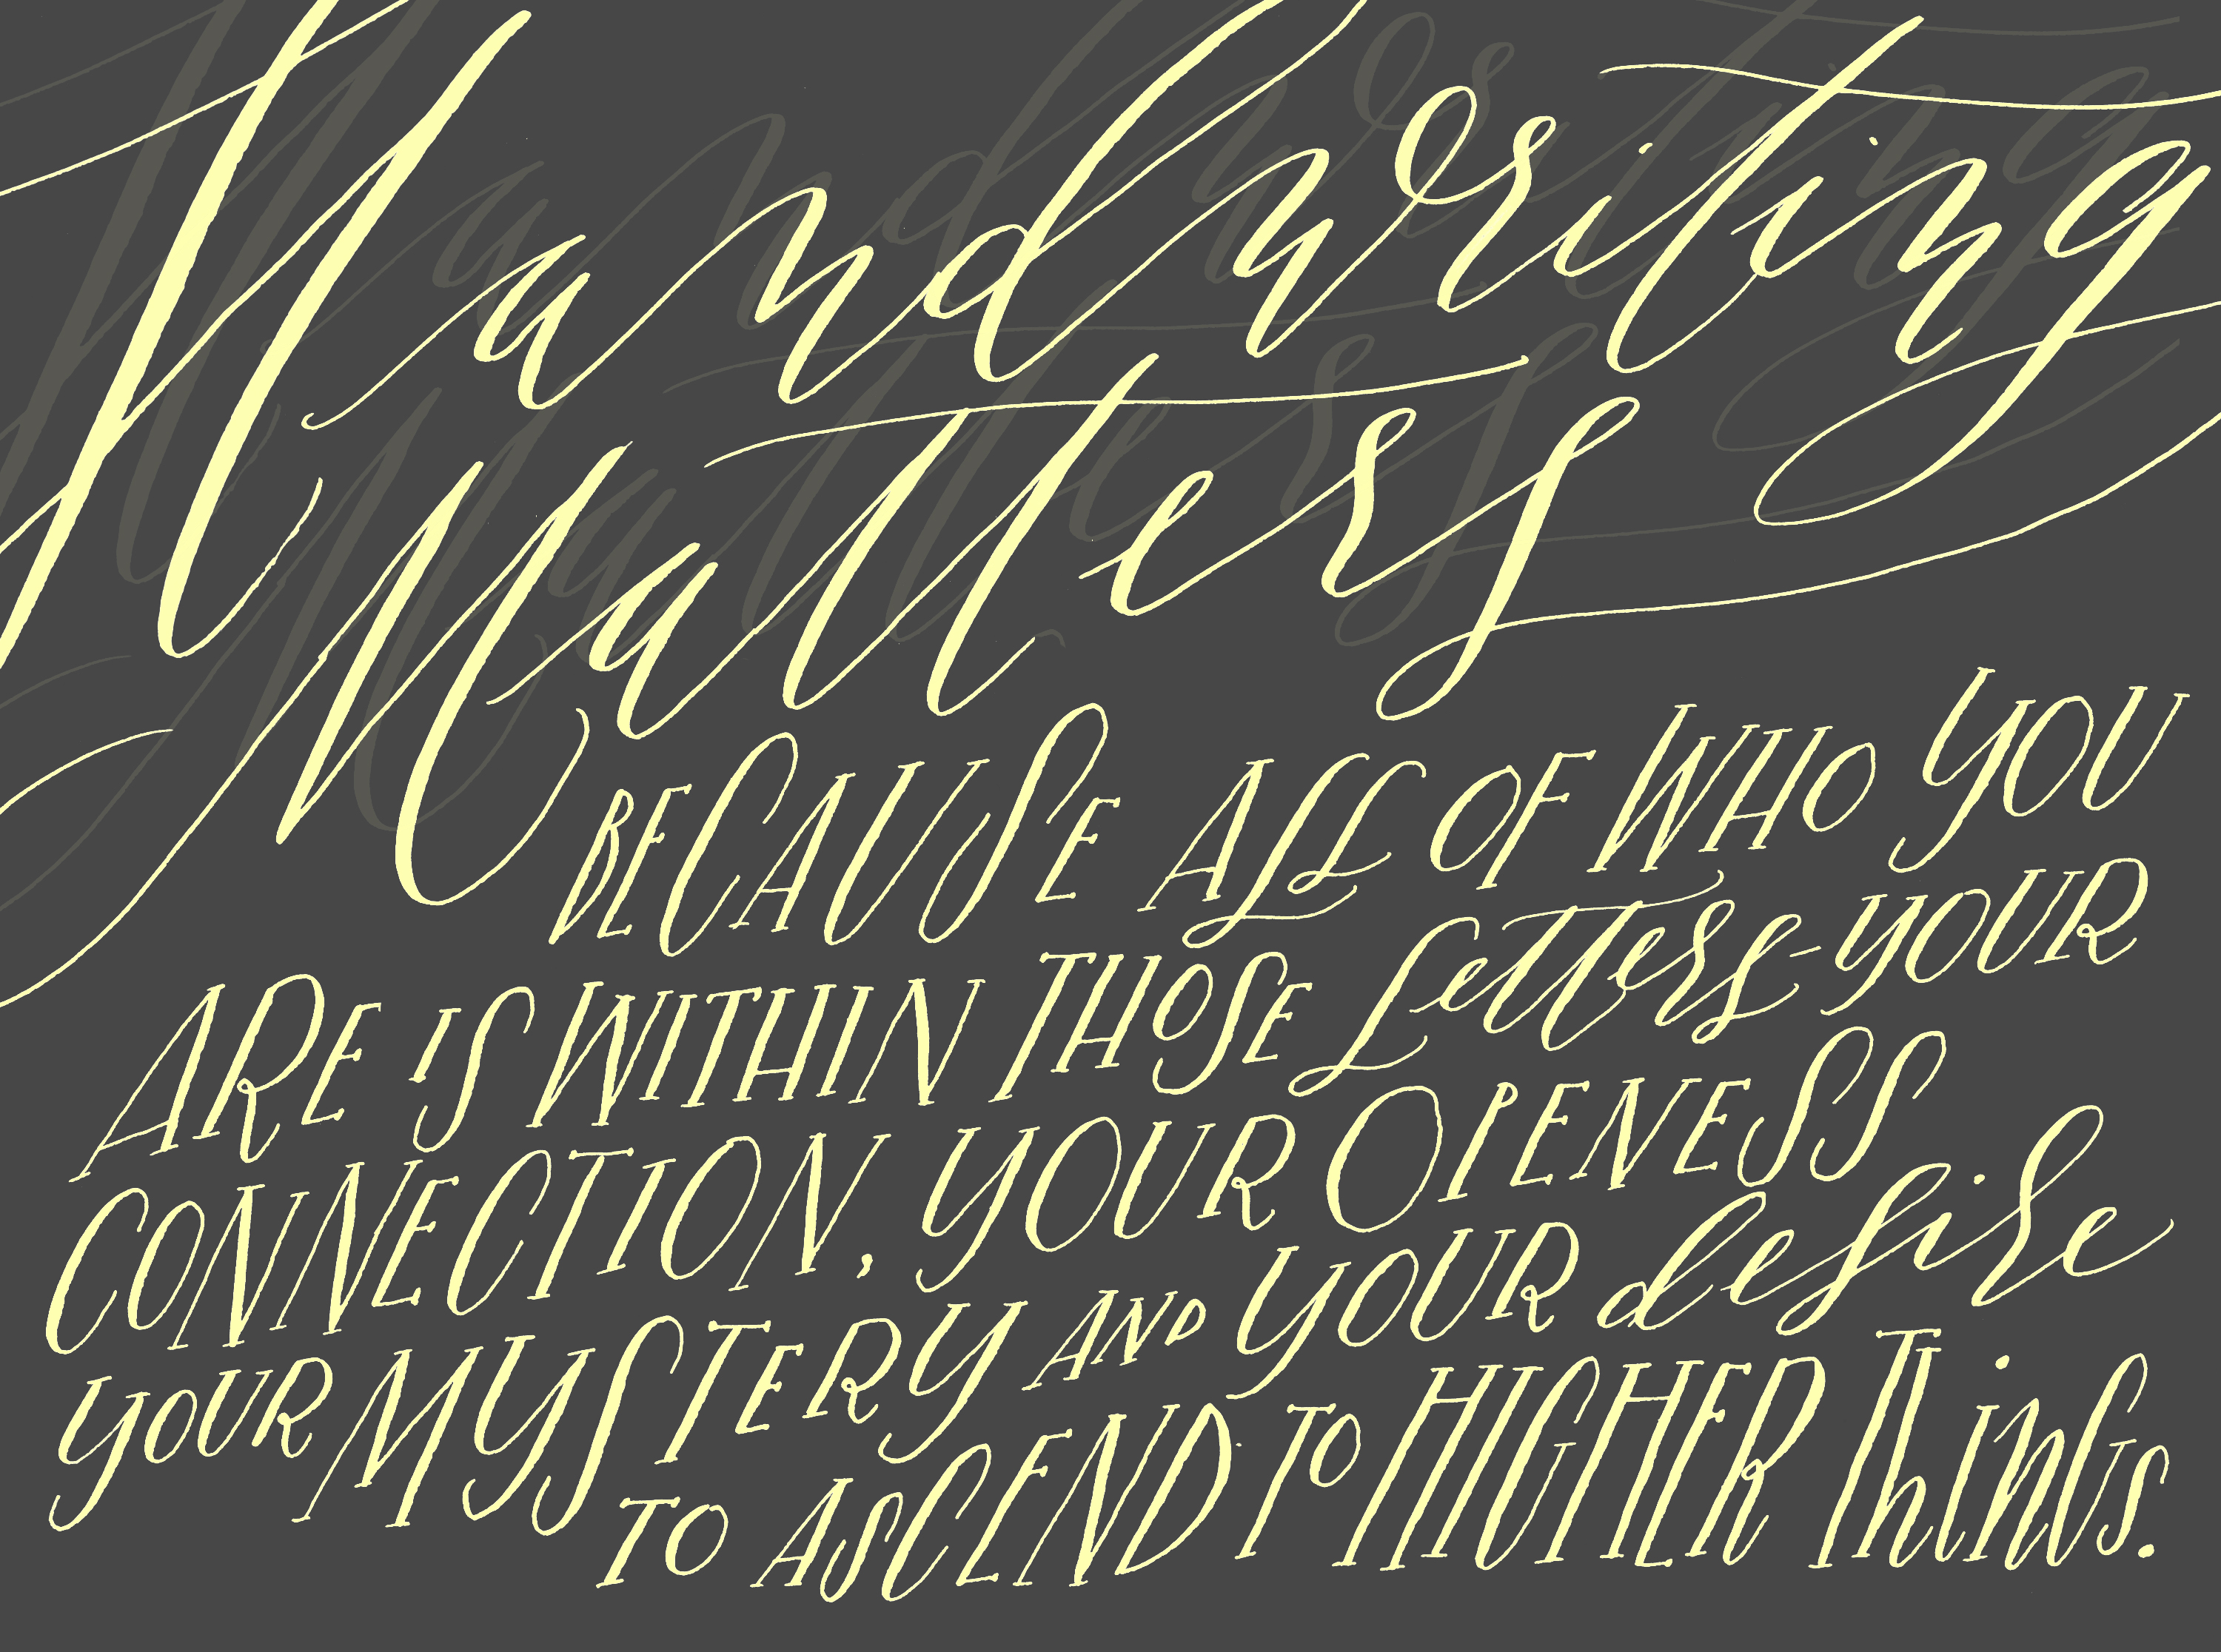 Handwriting
Matters
BECAUSE ALL OF WHO YOU
ARE IS WITHIN THOSE Letters - YOUR
CONNECTION, YOUR OPENESS
YOUR MYSTERY AND YOUR desire
TO ASCEND TO HIGHER Things.